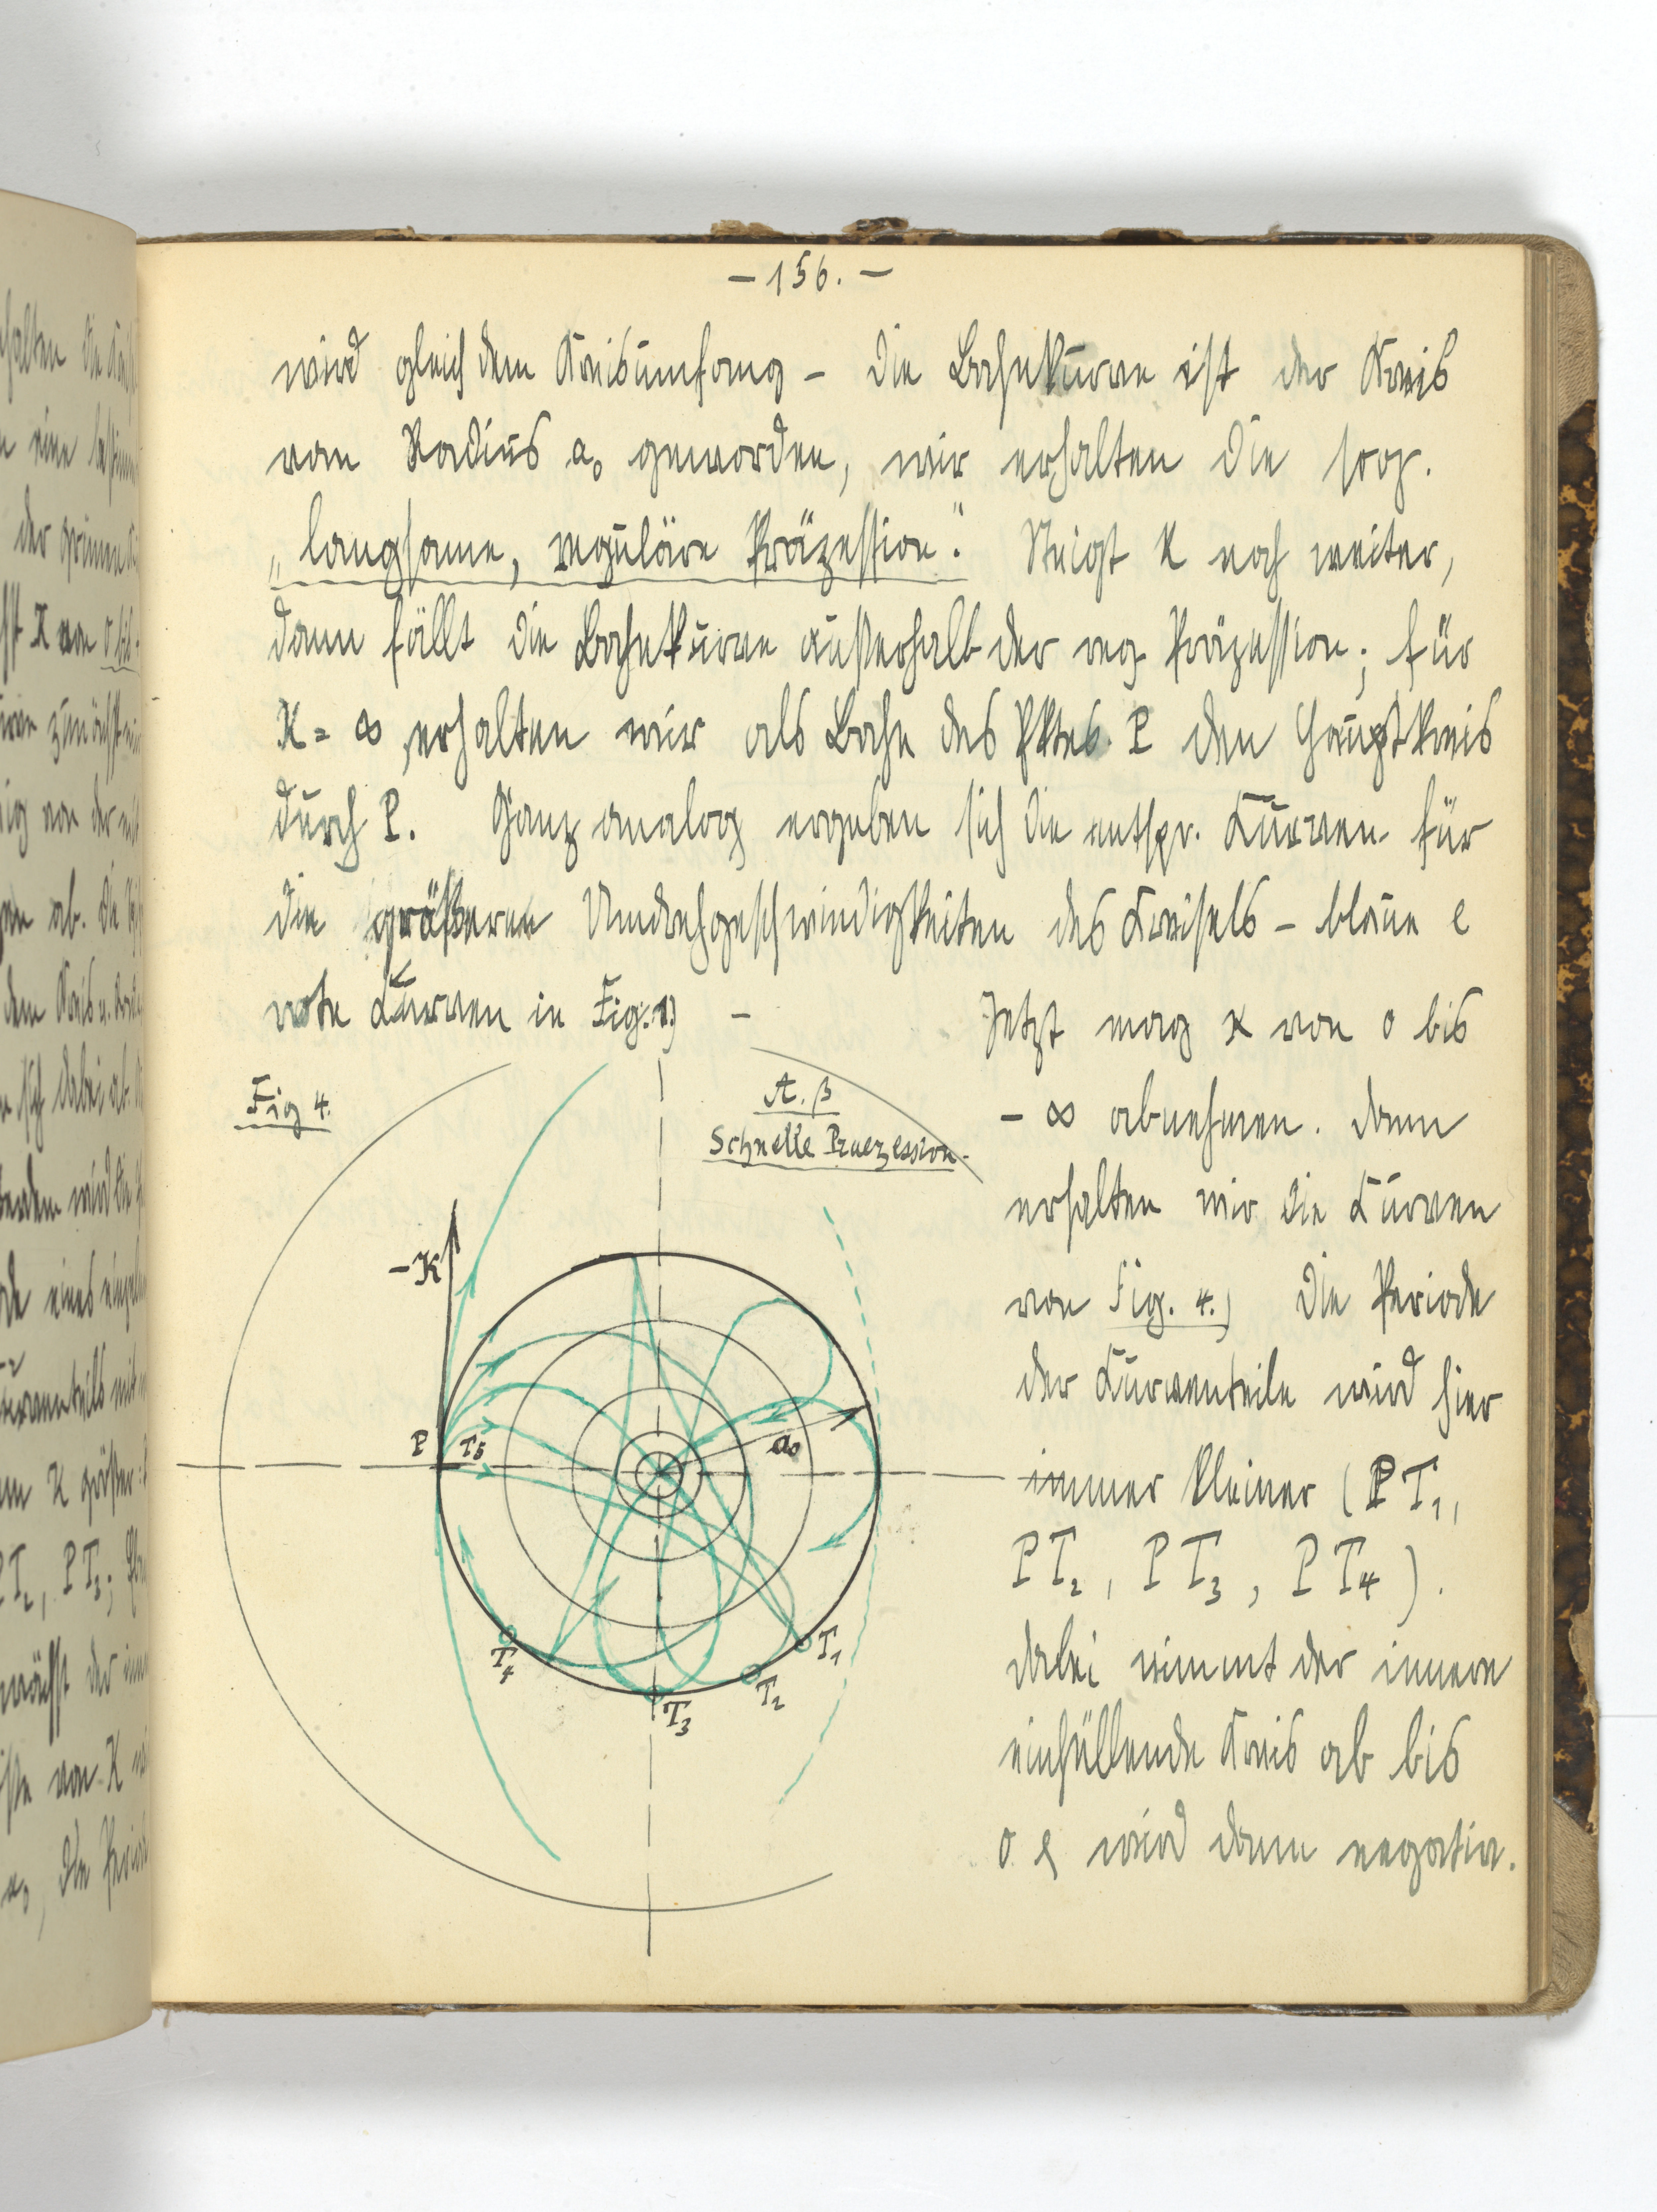 – 156. –
wird gleich dem Kreisumfang – die Bahnkurve ist der Kreis
vom Radius a₀ geworden, wir erhalten die sog.
„langsame, reguläre Präzession“. Steigt K noch weiter,
dann fällt die Bahnkurve außerhalb der reg Präzession; für
K = ∞ erhalten wir als Bahn des Pktes. P den Hauptkreis
durch P. Ganz analog ergeben sich die entspr. Kurven für
die größeren Umdrehgeschwindigkeiten des Kreisels – blaue &
rote Kurven in Fig. 1) –
Jetzt mag K von 0 bis
– ∞ abnehmen. Dann
erhalten wir die Kurven
von Fig. 4.) Die Periode
der Kurventeile wird hier
immer kleiner (PT₁,
PT₂, PT₃, PT₄).
dabei nimmt der innere
einhüllende Kreis ab bis
0 & wird dann negativ.
Fig 4.
A. β
Schnelle Praezession.
–K
P
T₅
a₀
T₄
T₃
T₂
T₁